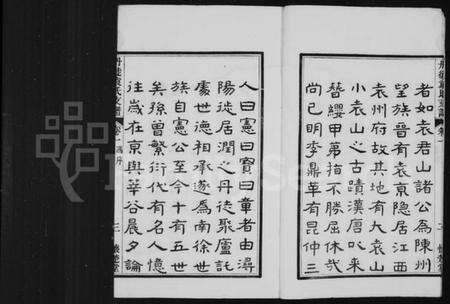 者如袁君山諸公為陳州
望族晉有袁京隐居江西
袁州府故其地有大袁山
小袁山之古蹟漢唐以來
簪纓甲第指不勝屈休哉
尚已明季鼎革有昆仲三
人曰憲曰寶曰章者由潯
陽徙居潤之丹徒聚廬託
處世德相承遂為南徐世
族自憲公至今十有五世
矣孫曾繁衍代有名人憶
往歲在京與華谷晨夕論